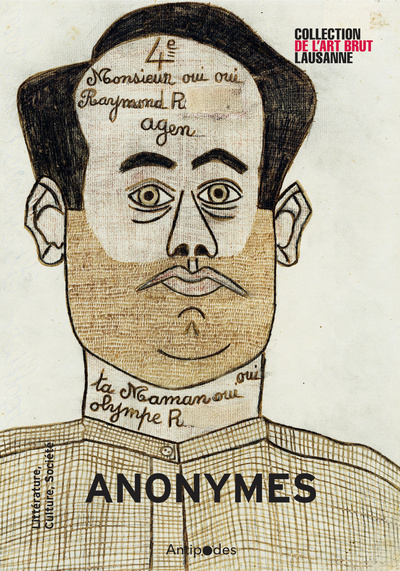 COLLECTION
DE L'ART BRUT
LAUSANNE
4e
Monsieur oui oui
Raymond R
agen
ta Maman oui oui
olympe R
Littérature,
Culture, Société
ANONYMES
Antipodes